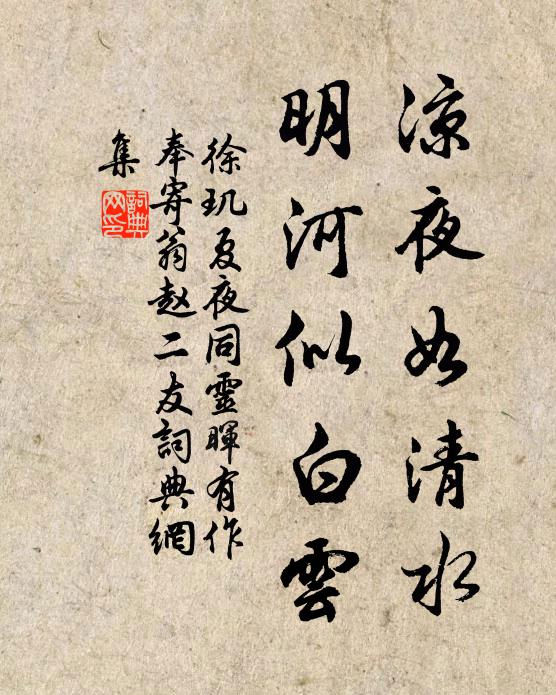 涼夜如清水
明河似白雲
徐玑夏夜同靈暉有作
奉寄翁赵二友詞典網
集
詞典
网印